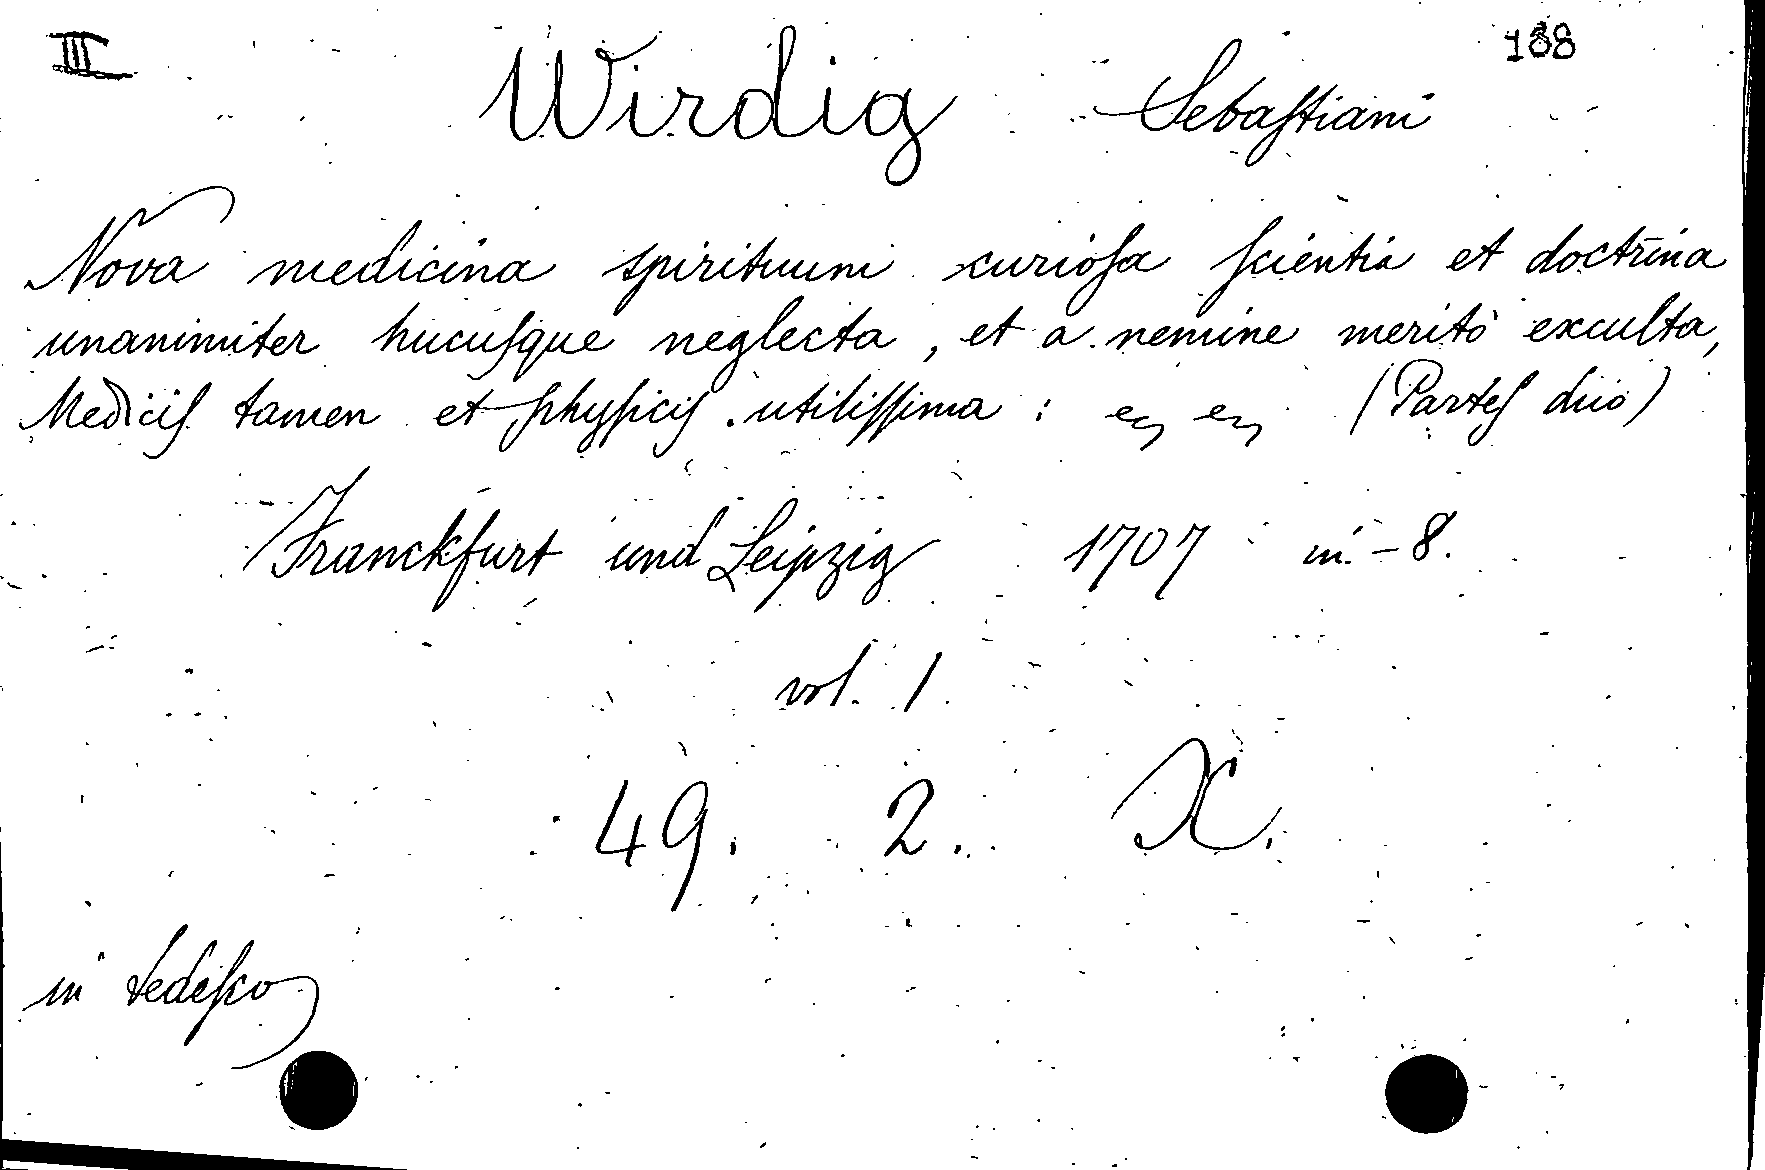 III 188
Wirdig Sebaſtiani
Nova medicina spirituum curioſa ſcientia et doctrina
unanimiter hucuſque neglecta, et a nemine meritò exculta,
Mediciſ tamen et phyſiciſ utiliſſima : (Parteſ duo)
Franckfurt und Leipzig 1707 in-8.
vol. 1
49. 2. X.
in tedeſco